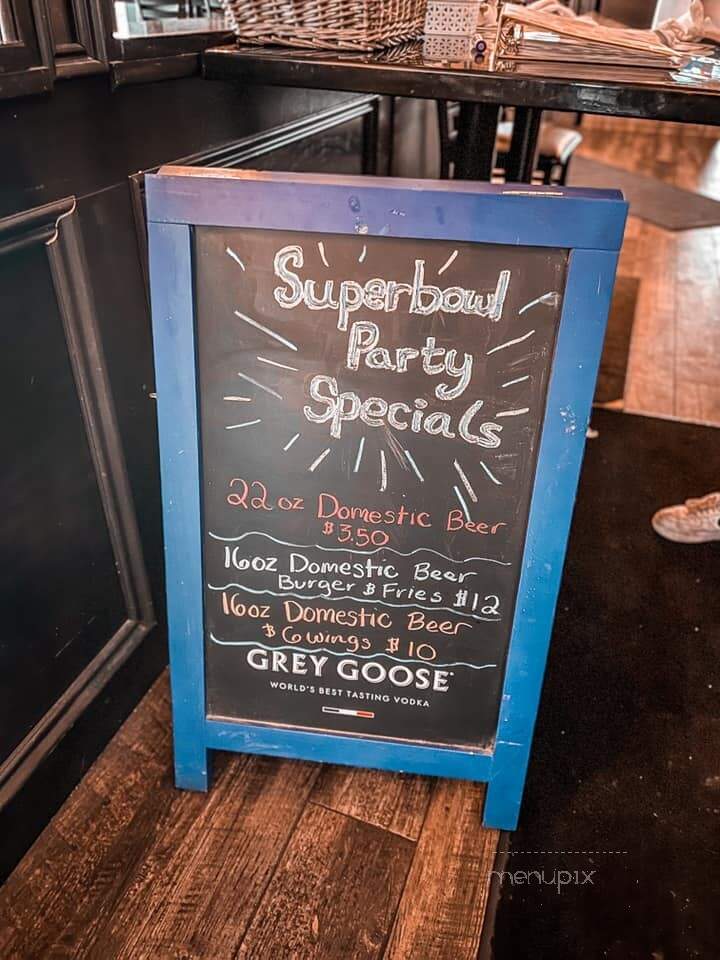 Superbowl
Party
Specials
22 oz Domestic Beer
$3.50
16oz Domestic Beer
Burger & Fries $12
16oz Domestic Beer
& 6 wings $10
GREY GOOSE
WORLD'S BEST TASTING VODKA
menupix